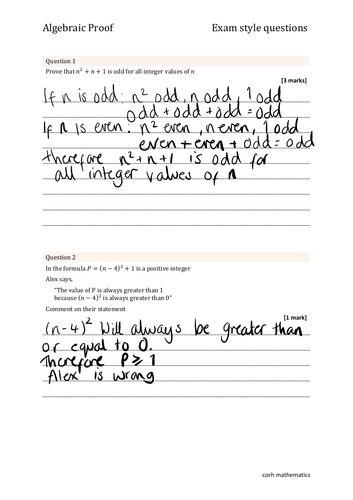 Algebraic Proof Exam style questions
Question 1
Prove that n² + n + 1 is odd for all integer values of n
[3 marks]
If n is odd: n² odd, n odd, 1 odd
odd + odd + odd = odd
If n is even: n² even, n even, 1 odd
even + even + odd = odd
therefore n²+n+1 is odd for
all integer values of n
Question 2
In the formula P = (n − 4)² + 1 is a positive integer
Alex says,
"The value of P is always greater than 1
because (n − 4)² is always greater than 0"
Comment on their statement
[1 mark]
(n-4)² Will always be greater than
or equal to 0.
Therefore P ⩾ 1
Alex is wrong
corh mathematics